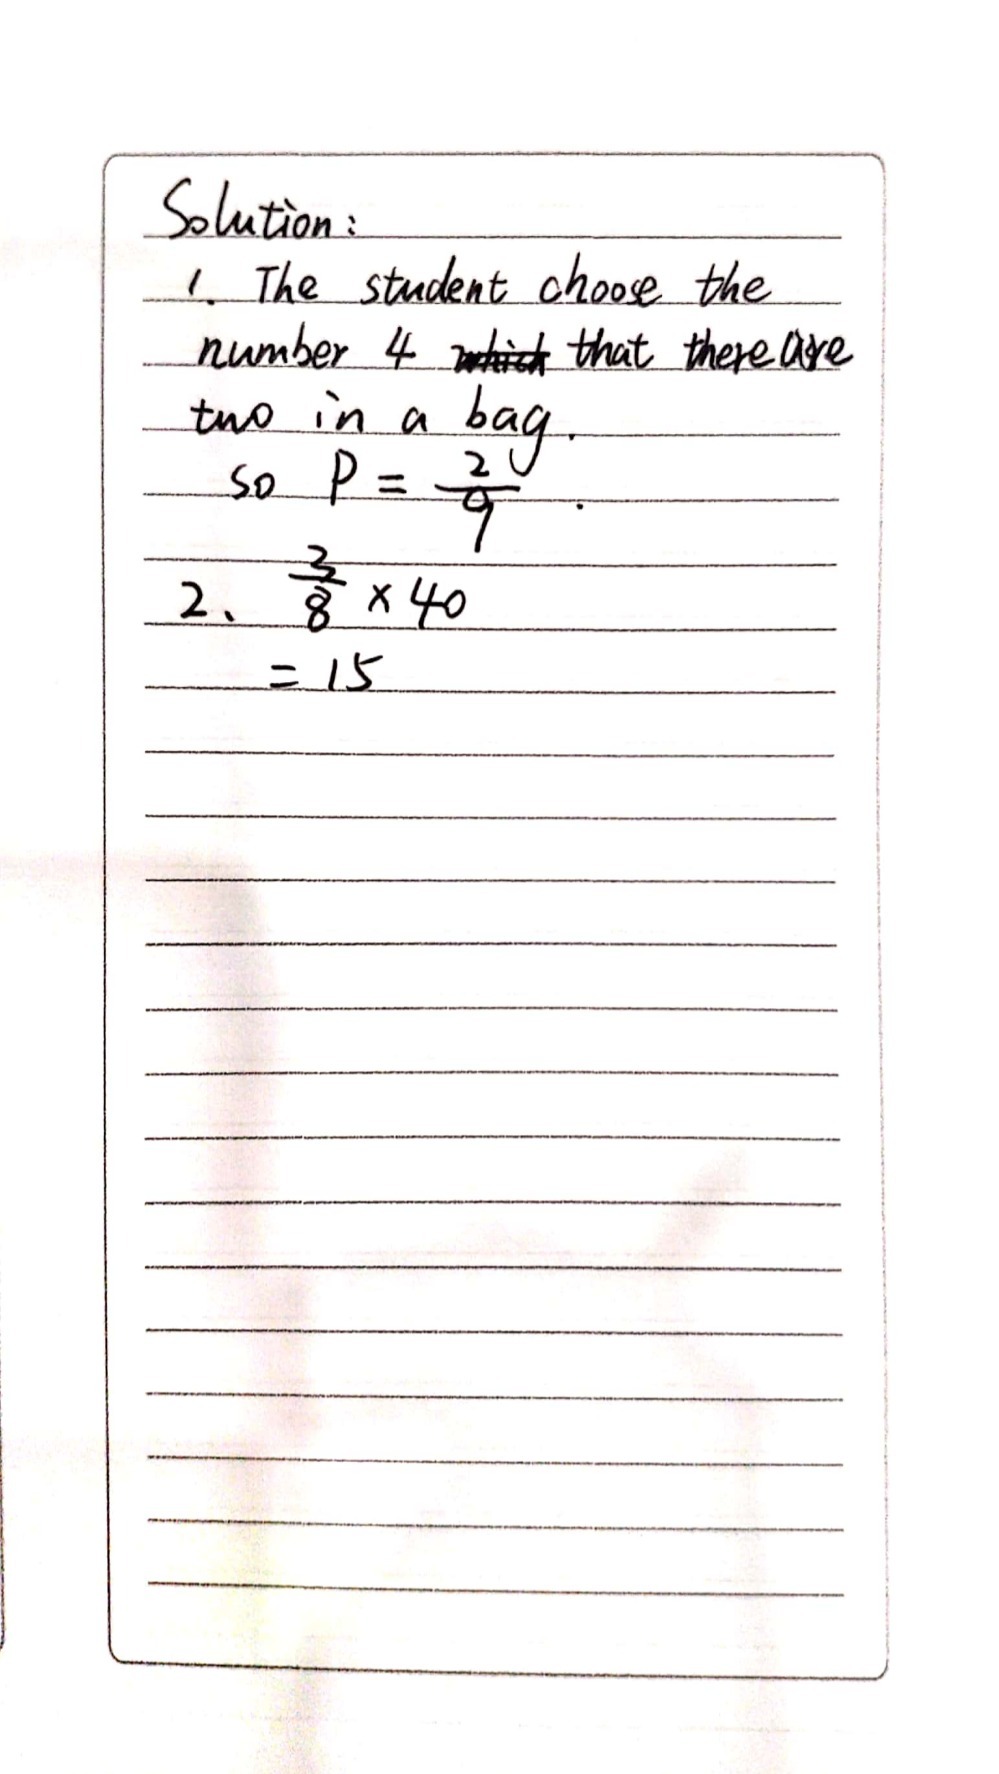 Solution:
1. The student choose the
number 4 which that there are
two in a bag.
so P = 2/9.
2、 3/8 × 40
= 15